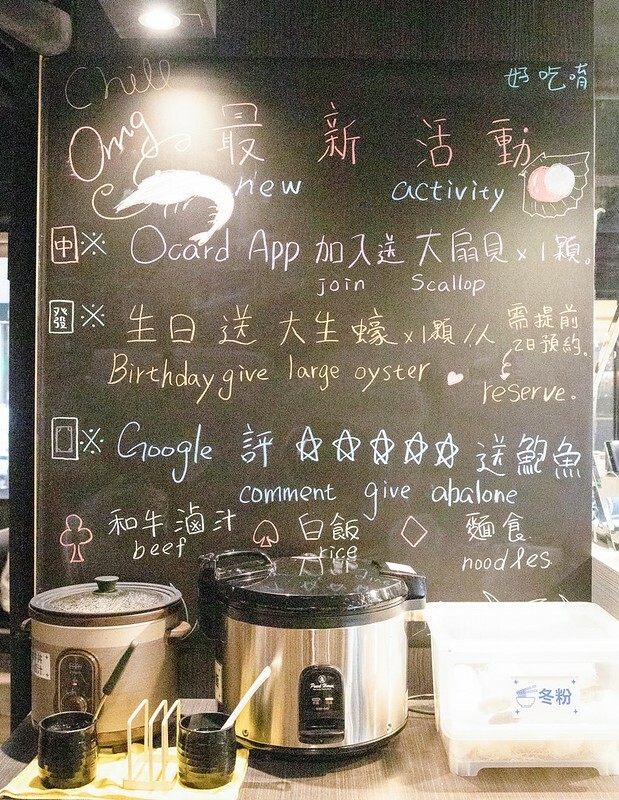 Chill
好吃唷
Omg 最新活動
new activity
中 ※ Ocard App 加入送 大扇貝 x 1顆。
join Scallop
發 ※ 生日送大生蠔 x1顆/人 需提前2日預約.
Birthday give large oyster reserve.
※ Google 評 ☆☆☆☆☆ 送鮑魚
comment give abalone
♧ 和牛滷汁 ♤ 白飯 ♢ 麵食
beef rice noodles
冬粉